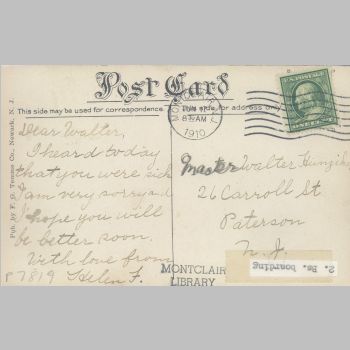 Post Card
This side may be used for correspondence.
This side for address only
MONTCLAIR
JUN 17
8 30 AM
1910
U.S. POSTAGE
Pub. by F. G. Temme Co., Newark, N. J.
Dear Walter,
I heard today
that you were sick
I am very sorry and
I hope you will
be better soon.
With love from
Helen F.
P 7819
Master Walter Hunziker
26 Carroll St
Paterson
N. J.
MONTCLAIR
LIBRARY
2. Bs. boarding